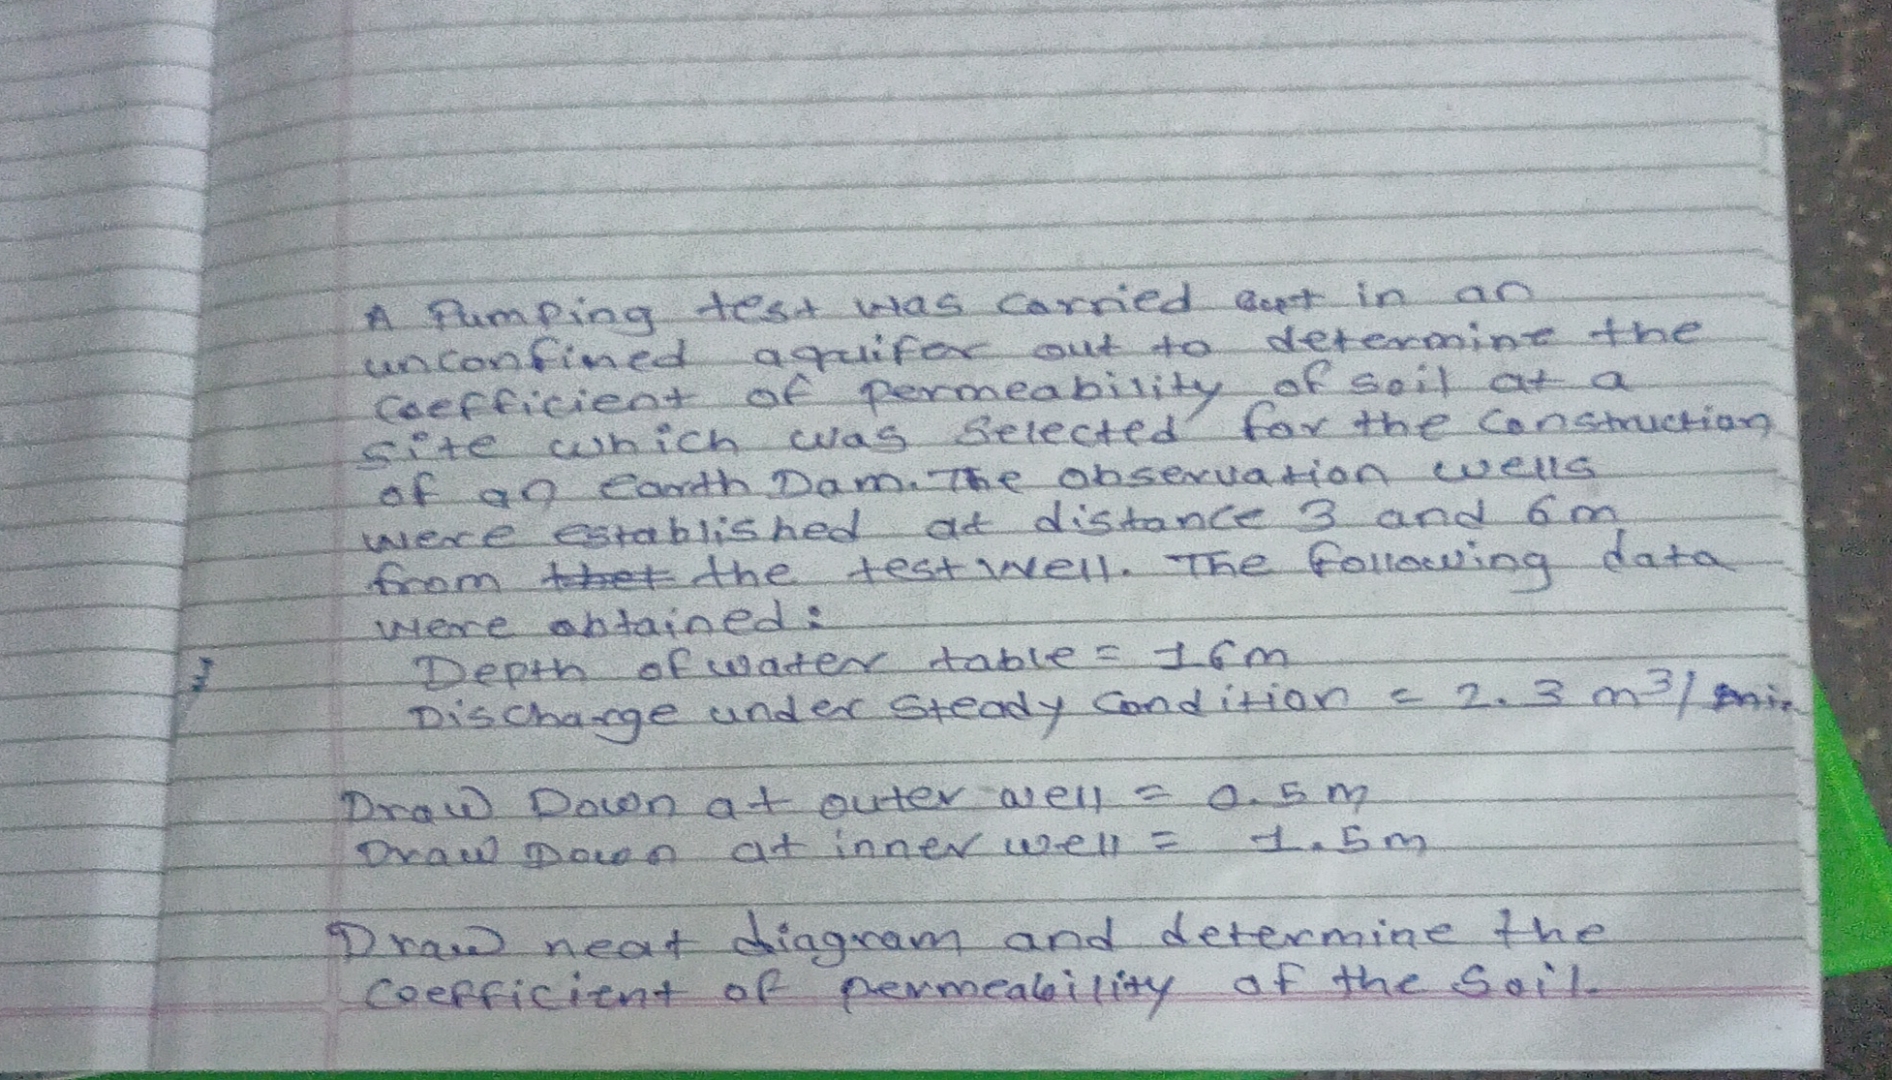 A Pumping test was carried out in an
unconfined aquifer out to determine the
coefficient of permeability of soil at a
site which was selected for the construction
of an earth Dam. The observation wells
were established at distance 3 and 6 m
from thet the test well. The following data
were obtained:
Depth of water table = 16m
Discharge under steady condition = 2.3 m³/min
Draw Down at outer well = 0.5 m
Draw Down at inner well = 1.5m
Draw neat diagram and determine the
coefficient of permeability of the soil.